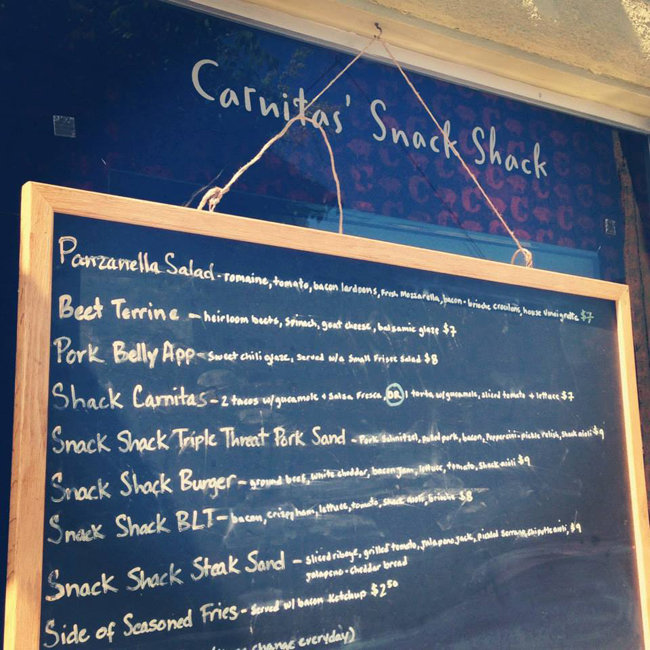 Carnitas' Snack Shack
Panzanella Salad - romaine, tomato, bacon lardons, fresh mozzarella, bacon-brioche croutons, house vinaigrette $7
Beet Terrine - heirloom beets, spinach, goat cheese, balsamic glaze $7
Pork Belly App - sweet chili glaze, served w/a small frisee salad $8
Shack Carnitas - 2 tacos w/guacamole + salsa fresca OR 1 torta w/guacamole, sliced tomato + lettuce $7
Snack Shack Triple Threat Pork Sand - Pork schnitzel, pulled pork, bacon, pepperoncini-pickle relish, shack aioli $9
Snack Shack Burger - ground beef, white cheddar, bacon jam, lettuce, tomato, shack aioli $9
Snack Shack BLT - bacon, crispy ham, lettuce, tomato, shack aioli, brioche $8
Snack Shack Steak Sand - sliced ribeye, grilled tomato, jalapeno jack, pickled serrano, chipotle aioli, $9
jalapeno-cheddar bread
Side of Seasoned Fries - served w/ bacon ketchup $2.50
change everyday)